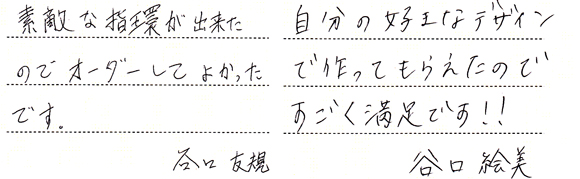 素敵な指環が出来た
のでオーダーしてよかった
です。
谷口 友規
自分の好きなデザイン
で作ってもらえたので
すごく満足です!!
谷口 絵美